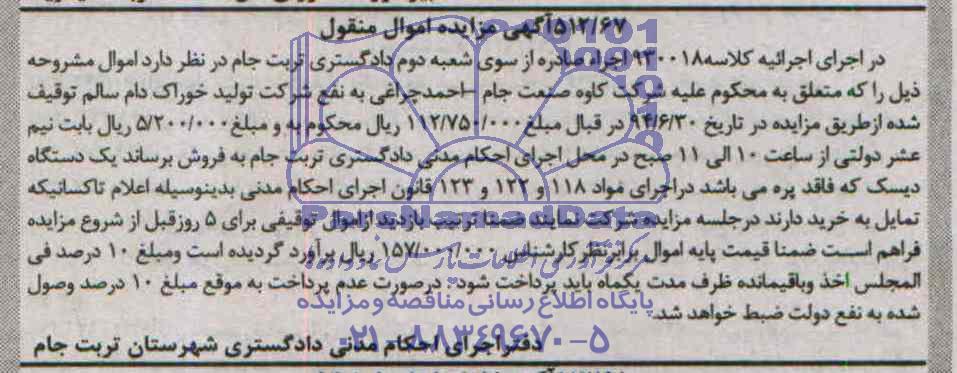 ۵۱۲/۶۷آگهی مزایده اموال منقول
در اجرای اجرائیه کلاسه۹۳۰۰۱۸ اجراء صادره از سوی شعبه دوم دادگستری تربت جام در نظر دارد اموال مشروحه
ذیل را که متعلق به محکوم علیه شرکت کاوه صنعت جام –احمدچراغی به نفع شرکت تولید خوراک دام سالم توقیف
شده ازطریق مزایده در تاریخ ۹۴/۶/۳۰ در قبال مبلغ۱۱۲/۷۵۰/۰۰۰ ریال محکوم به و مبلغ۵/۲۰۰/۰۰۰ ریال بابت نیم
عشر دولتی از ساعت ۱۰ الی ۱۱ صبح در محل اجرای احکام مدنی دادگستری تربت جام به فروش برساند یک دستگاه
دیسک که فاقد پره می باشد دراجرای مواد ۱۱۸ و ۱۲۲ و ۱۲۳ قانون اجرای احکام مدنی بدینوسیله اعلام تاکسانیکه
تمایل به خرید دارند درجلسه مزایده شرکت نمایند ضمنا ترتیب بازدید ازاموال توقیفی برای ۵ روزقبل از شروع مزایده
فراهم است ضمنا قیمت پایه اموال برابرنظرکارشناس ۱۵۷/۰۰۰/۰۰۰ ریال برآورد گردیده است ومبلغ ۱۰ درصد فی
المجلس اخذ وباقیمانده ظرف مدت یکماه باید پرداخت شود. درصورت عدم پرداخت به موقع مبلغ ۱۰ درصد وصول
شده به نفع دولت ضبط خواهد شد.
دفتراجرای احکام مدنی دادگستری شهرستان تربت جام
ParsNamadData
پایگاه اطلاع رسانی مناقصه و مزایده
۰۲۱-۸۸۳۴۹۶۷۰-۵